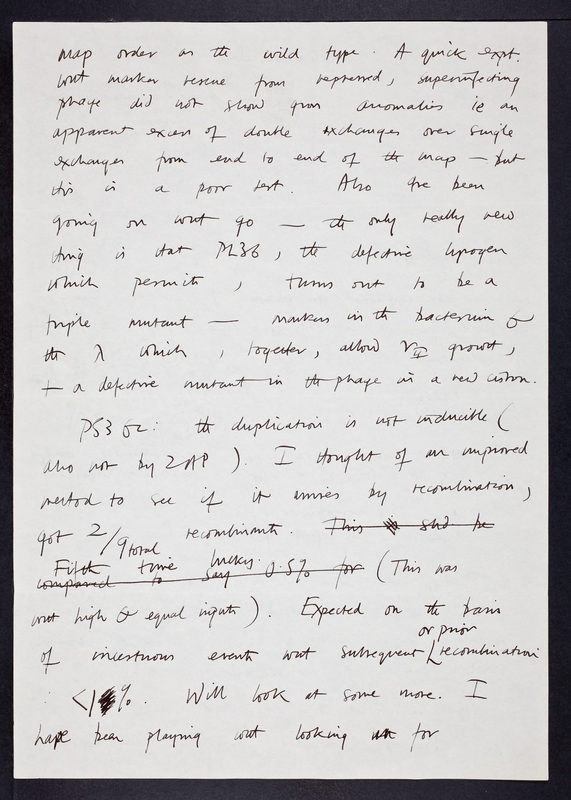 map order as the wild type. A quick expt.
wit marker rescue from repressed, superinfecting
phage did not show gross anomalies ie an
apparent excess of double exchanges over single
exchanges from end to end of the map — but
this is a poor test. Also I've been
going on wit — the only really new
thing is that PL36, the defective lysogen
which permits, turns out to be a
triple mutant — markers in the bacterium &
the λ which, together, allow rII growth,
+ a defective mutant in the phage in a new cistron.
the duplication is not inducible (
also not by 2AP). I thought of an improved
method to see if it arises by recombination,
got 2/9 total recombinants. This is shd be
Fifth time lucky.
compared to say 0.5% for (This was
wit high & equal inputs). Expected on the basis
or prior
of incestuous events wit subsequent recombination
<1%. Will look at some more. I
have been playing wit looking for